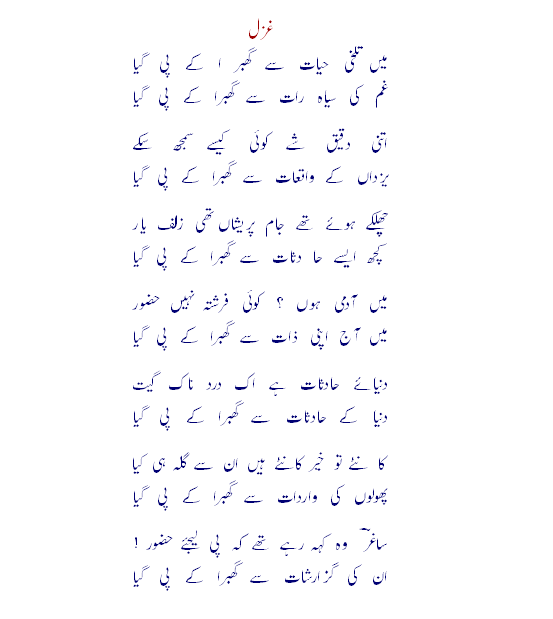 غزل
میں تلخی حیات سے گھبرا کے پی گیا
غم کی سیاہ رات سے گھبرا کے پی گیا
اتنی دقیق شے کوئی کیسے سمجھ سکے
یزداں کے واقعات سے گھبرا کے پی گیا
چھلکے ہوئے تھے جام پریشاں تھی زلف یار
کچھ ایسے حادثات سے گھبرا کے پی گیا
میں آدمی ہوں ؟ کوئی فرشتہ نہیں حضور
میں آج اپنی ذات سے گھبرا کے پی گیا
دنیائے حادثات ہے اک درد ناک گیت
دنیا کے حادثات سے گھبرا کے پی گیا
کانٹے تو خیر کانٹے ہیں ان سے گلہ ہی کیا
پھولوں کی واردات سے گھبرا کے پی گیا
ساغرؔ وہ کہہ رہے تھے کہ پی لیجئے حضور !
ان کی گزارشات سے گھبرا کے پی گیا